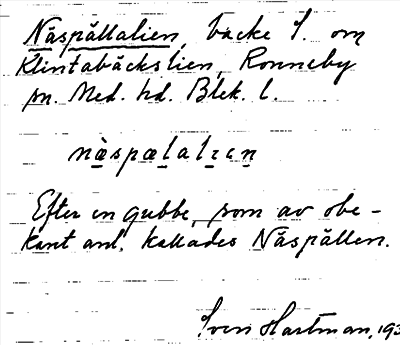 Näspällalien, backe S. om
Klintabäckslien, Ronneby
sn. Med. hd. Blek. l.
Efter en gubbe, som av obe-
kant anl. kallades Näspällen.
Sven Hartman, 193